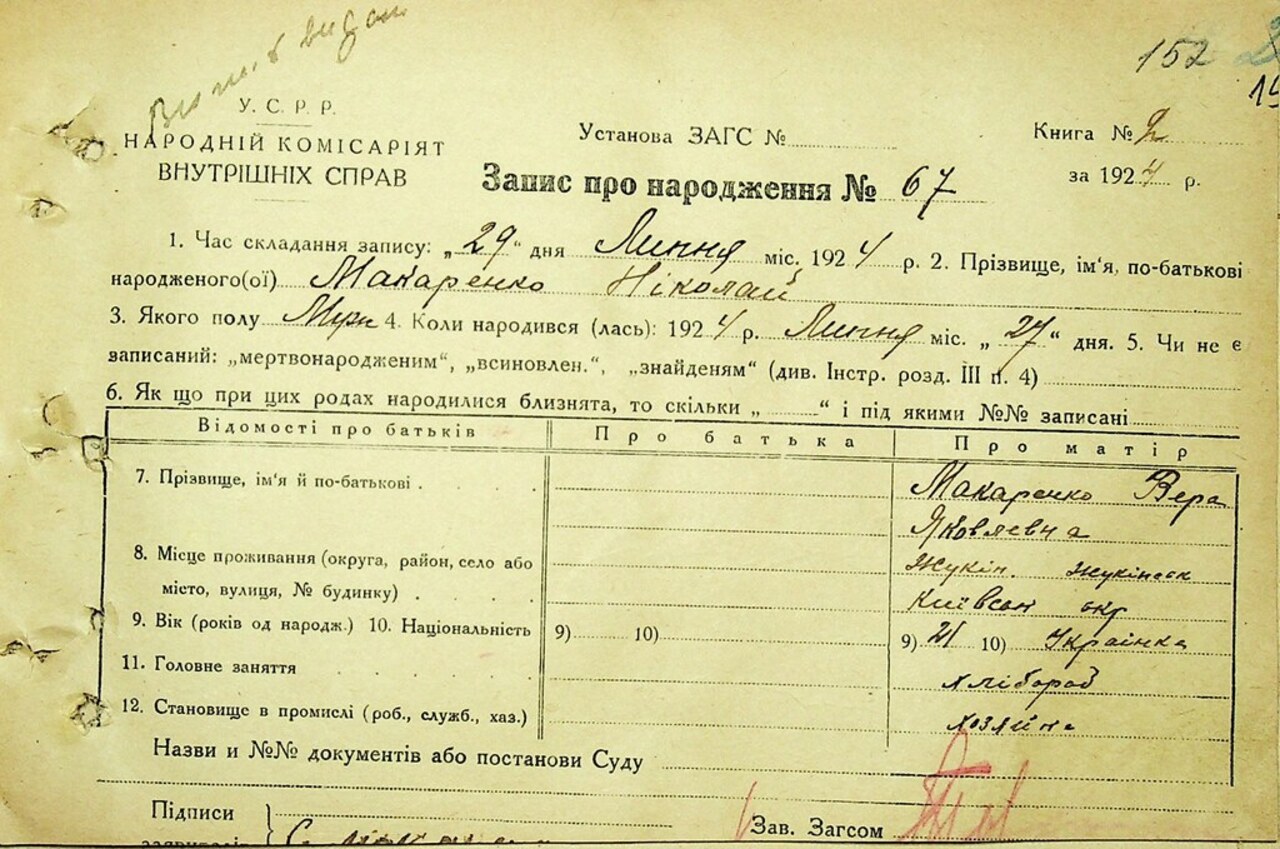 Вип. видан
152
У. С. Р. Р.
НАРОДНІЙ КОМІСАРІЯТ
ВНУТРІШНІХ СПРАВ
Установа ЗАГС №
Книга № 2
за 1924 р.
Запис про народження № 67
1. Час складання запису: „29“ дня Липня міс. 1924 р. 2. Прізвище, ім'я, по-батькові
народженого(ої) Макаренко Ніколай
3. Якого полу Муж 4. Коли народився (лась): 1924 р. Липня міс. „27“ дня. 5. Чи не є
записаний: „мертвонародженим“, „всиновлен.“, „знайденям“ (див. Інстр. розд. III п. 4)
6. Як що при цих родах народилися близнята, то скільки „ “ і під якими №№ записані
Відомості про батьків Про батька Про матір
7. Прізвище, ім'я й по-батькові Макаренко Вера
Яковлевна
8. Місце проживання (округа, район, село або Жукін. Жукінськ
місто, вулиця, № будинку) Київськ окр
9. Вік (років од народж.) 10. Національність 9) 10) 9) 21 10) Українка
11. Головне заняття хлібороб
12. Становище в промислі (роб., служб., хаз.) хозяйна
Назви и №№ документів або постанови Суду
Підписи
Зав. Загсом